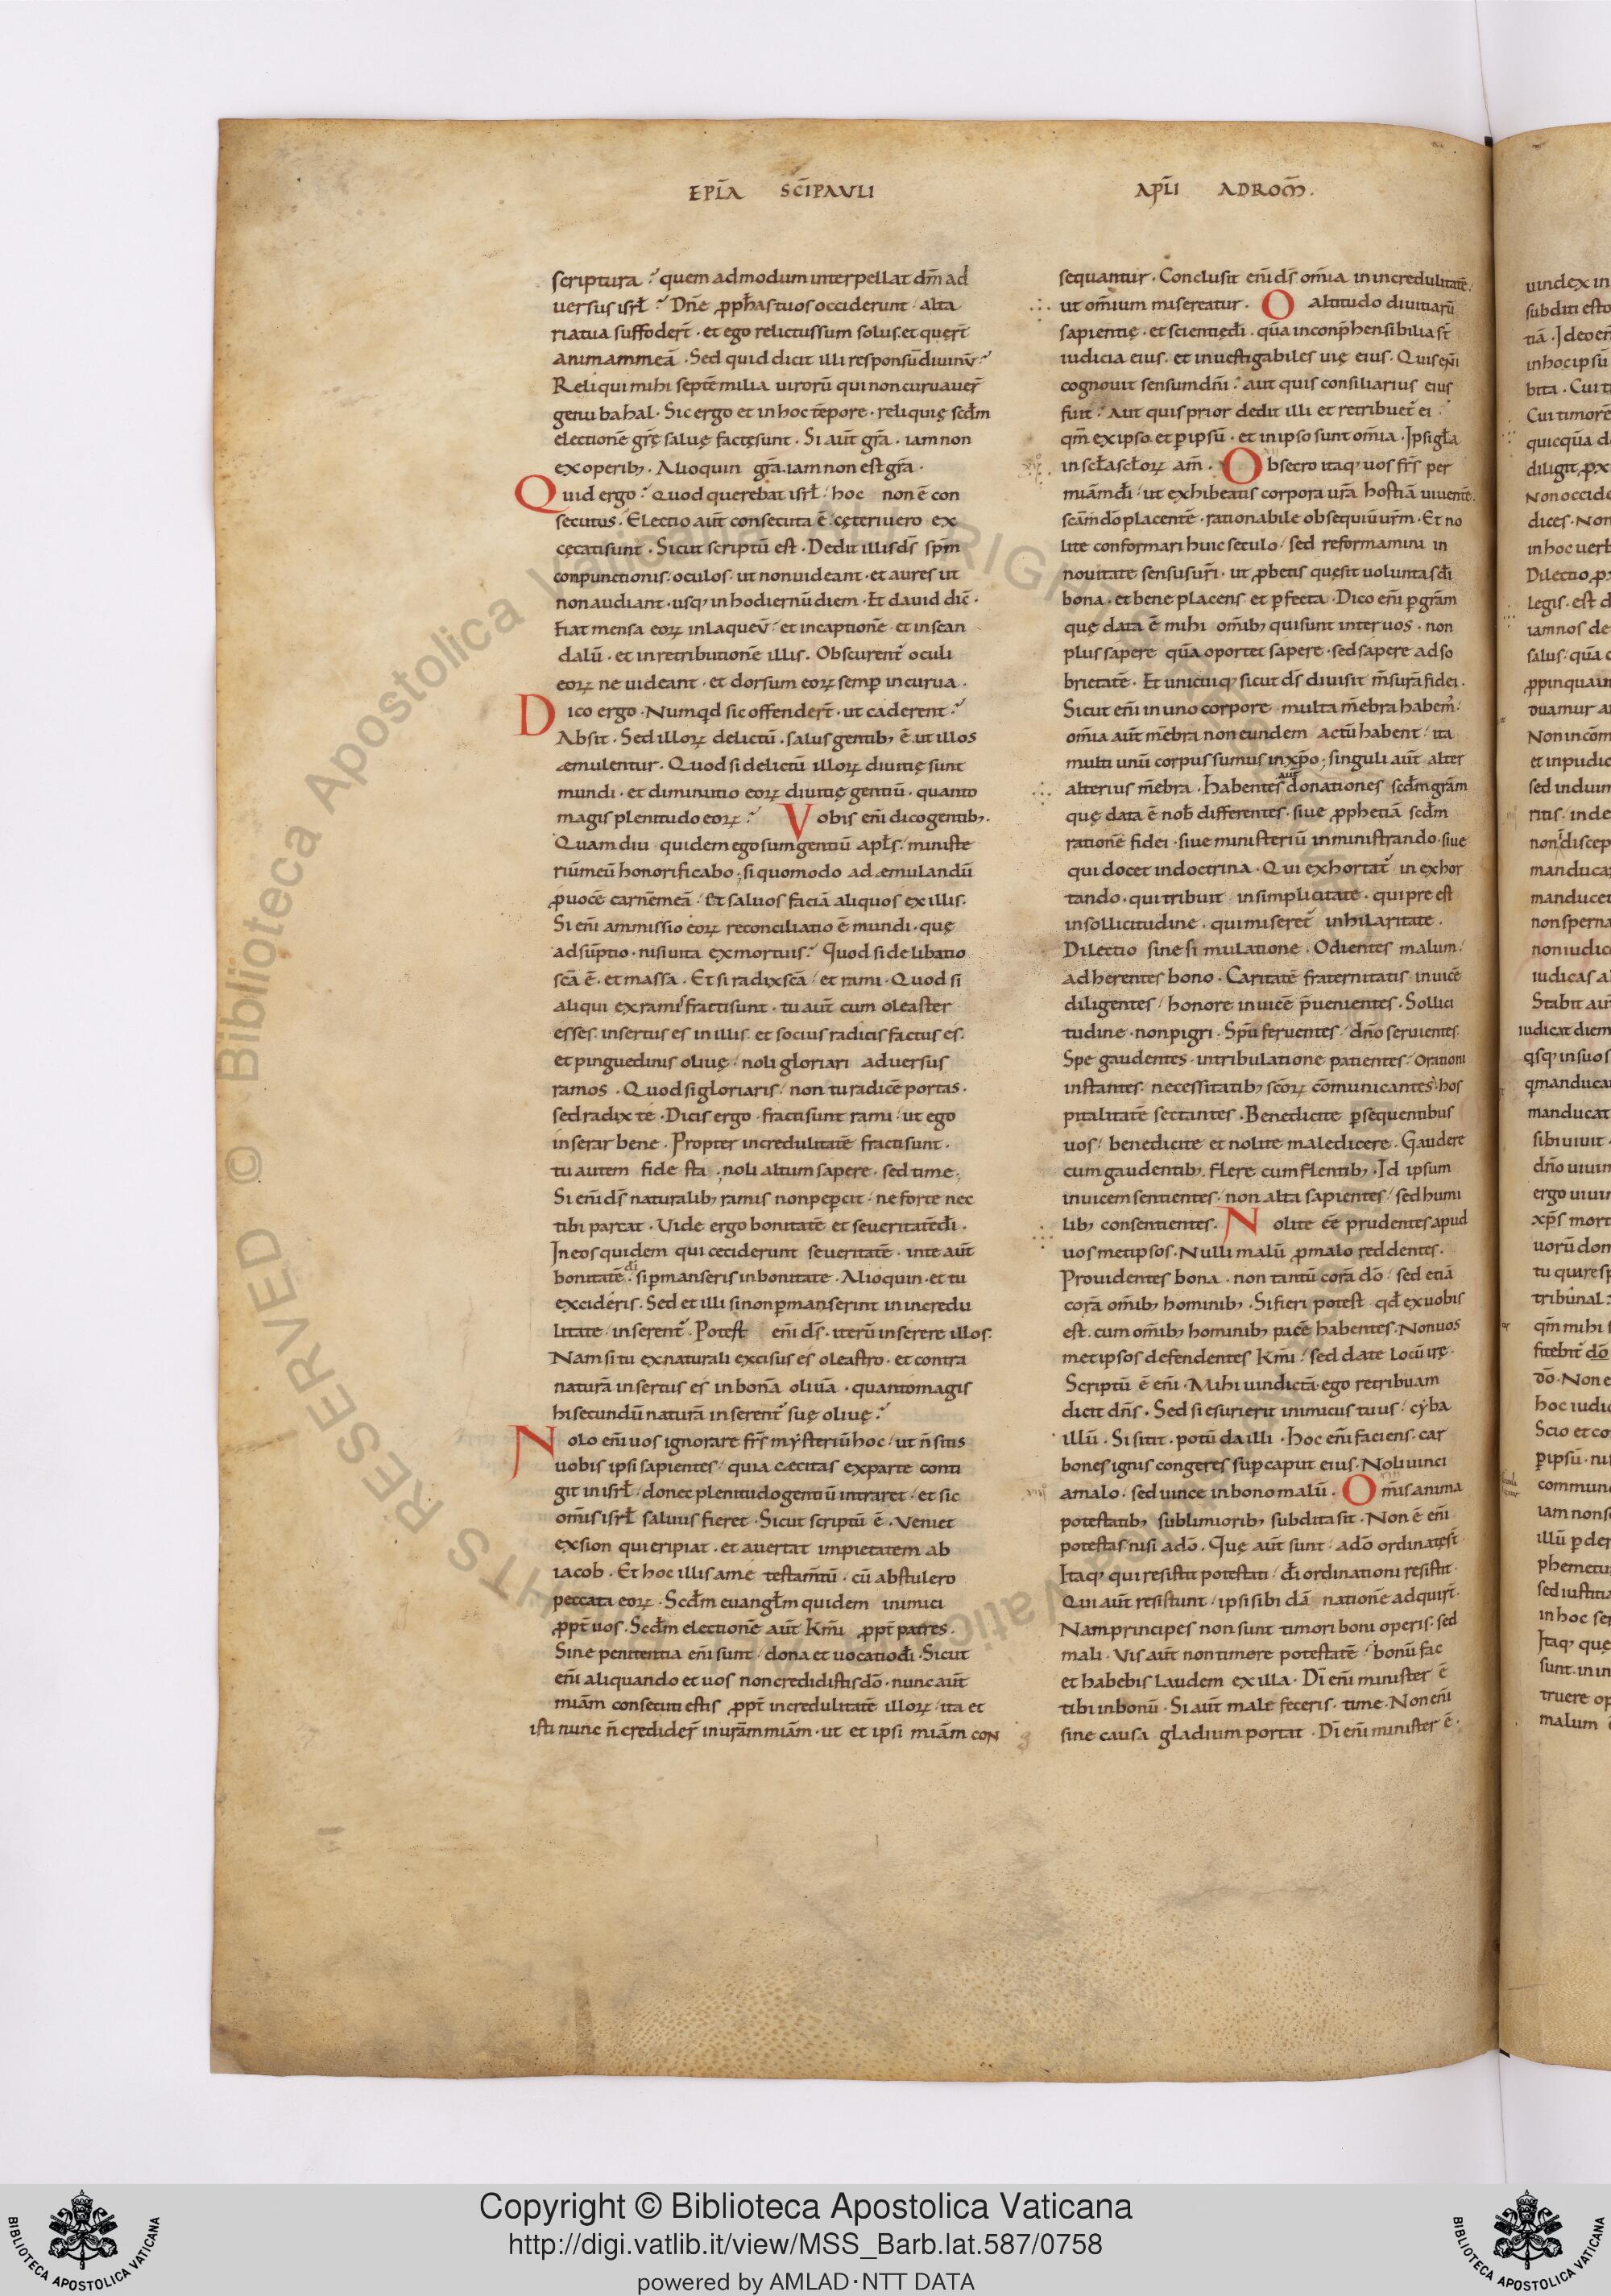 EPLA SCI PAVLI
APLI AD ROM.
scriptura? quem admodum interpellat dm̄ ad
uersus isrł? Dn̄e ꝓph̄as tuos occiderunt · alta
ria tua suffoder̄t · et ego relictus sum solus. et quer̄t
animam meā · Sed quid dicit illi responsū diuinū?
Reliqui mihi septē milia uirorū qui non curuauer̄
genu bahal · Sic ergo et in hoc tēpore · reliquię scd̄m
electionē gr̄ę saluę factę sunt · Si aut̄ gr̄a · iam non
ex operib; · Alioquin gr̄a. iam non est gr̄a ·
Quid ergo? Quod querebat isrł · hoc non ē con
secutus · Electio aut̄ consecuta ē · cęteri uero ex
cęcati sunt · Sicut scriptū est · Dedit illis ds̄ sp̄m
conpunctionis · oculos · ut non uideant · et aures ut
non audiant · usq; in hodiernū diem · Et dauid dic̄ ·
Fiat mensa eoꝝ in laqueū · et in captionē · et in scan
dalū · et in retributionē illis · Obscurent̄ oculi
eoꝝ ne uideant · et dorsum eoꝝ semp̄ incurua ·
Dico ergo · Numqd sic offender̄t · ut caderent?
Absit · Sed illoꝝ delictū · salus gentib; ē. ut illos
æmulentur · Quod si delictū illoꝝ diuitię sunt
mundi · et diminutio eoꝝ diuitię gentiū · quanto
magis plenitudo eoꝝ? Vobis eni dico gentib; ·
Quam diu quidem ego sum gentiū apłs · ministe
riū meū honorificabo · si quomodo ad æmulandū
ꝓuocē carnē meā · Et saluos faciā aliquos ex illis ·
Si eni ammissio eoꝝ reconciliatio ē mundi · quę
adsūptio · nisi uita ex mortuis? Quod si delibatio
scā ē · et massa · Et si radix scā · et rami · Quod si
aliqui ex ramis fracti sunt · tu aut̄ cum oleaster
esses · insertus es in illis · et socius radicis factus es ·
et pinguedinis oliuę · noli gloriari aduersus
ramos · Quod si gloriaris · non tu radicē portas ·
sed radix te · Dicis ergo · fracti sunt rami · ut ego
inserar bene · Propter incredulitatē fracti sunt ·
tu autem fide sta · noli altum sapere · sed time ·
Si eni ds̄ naturalib; ramis non peꝑcit · ne forte nec
tibi parcat · Uide ergo bonitatē et seueritatē dī ·
In eos quidem qui ceciderunt seueritatē · in te aut̄
bonitatē dī · si ꝑmanseris in bonitate · Alioquin · et tu
excideris · Sed et illi si non ꝑmanserint in incredu
litate · inserent̄ · Potest eni ds̄ · iterū inserere illos ·
Nam si tu ex naturali excisus es oleastro · et contra
naturā insertus es in bonā oliuā · quanto magis
hi secundū naturā inserent̄ suę oliuę?
Nolo eni uos ignorare frs̄ mẏsteriū hoc · ut n̄ sitis
uobis ipsi sapientes · quia cæcitas ex parte conti
git in isrł · donec plenitudo gentiū intraret · et sic
om̄is isrł saluus fieret · Sicut scriptū ē · Veniet
ex sion qui eripiat · et auertat impietatem ab
iacob · Et hoc illis a me testam̄tū · cū abstulero
peccata eoꝝ · Scd̄m euangłm quidem inimici
ꝓpt̄ uos · Scd̄m electionē aut̄ Km̄i ꝓpt̄ patres ·
Sine penitentia eni sunt · dona et uocatio dī · Sicut
eni aliquando et uos non credidistis dō · nunc aut̄
miām consecuti estis ꝓpt̄ incredulitatē illoꝝ · ita et
isti nunc n̄ credider̄ in urām miām · ut et ipsi miām con
sequantur · Conclusit eni ds̄ om̄ia in incredulitatē ·
ut om̄ium misereatur · O altitudo diuitiarū
sapientię · et scientię dī · quā inconp̄hensibilia st̄
iudicia eius · et inuestigabiles uię eius · Quis eni
cognouit sensum dn̄i? aut quis consiliarius eius
fuit? Aut quis prior dedit illi et retribuet̄ ei ·
qm̄ ex ipso et ꝑ ipsū · et in ipso sunt om̄ia · Ipsi gła
in scła scłoꝝ am̄ · Obsecro itaq; uos frs̄ per
miām dī · ut exhibeatis corpora ur̄a hostiā uiuentē ·
scām dō placentē · rationabile obsequiū ur̄m · Et no
lite conformari huic seculo · sed reformamini in
nouitate sensus ur̄i · ut ꝓbetis quę sit uoluntas dī
bona · et bene placens et ꝑfecta · Dico eni ꝑ grām
quę data ē mihi om̄ib; qui sunt inter uos · non
plus sapere quā oportet sapere · sed sapere ad so
brietatē · Et unicuiq; sicut ds̄ diuisit m̄surā fidei ·
Sicut eni in uno corpore multa m̄ebra habem̄ ·
om̄ia aut̄ m̄ebra non eundem actū habent · ita
multi unū corpus sumus in xp̄o · singuli aut̄ alter
alterius m̄ebra · Habentes aut̄ donationes scd̄m grām
quę data ē nob̄ differentes · siue ꝓphetiā scd̄m
rationē fidei · siue ministeriū in ministrando · siue
qui docet in doctrina · Qui exhortat̄ in exhor
tando · qui tribuit in simplicitate · qui pre est
in sollicitudine · qui miseret̄ in hilaritate ·
Dilectio sine simulatione · Odientes malum ·
adherentes bono · Caritatē fraternitatis inuicē
diligentes · honore inuicē p̄uenientes · Sollici
tudine · non pigri · Spū feruentes · dn̄o seruientes ·
Spe gaudentes · in tribulatione patientes · Orationi
instantes · necessitatib; scōꝝ cōmunicantes · hos
pitalitatē sectantes · Benedicite ꝑsequentibus
uos · benedicite et nolite maledicere · Gaudere
cum gaudentib; · flere cum flentib; · Id ipsum
inuicem sentientes · non alta sapientes · sed humi
lib; consentientes · Nolite ēē prudentes apud
uos metipsos · Nulli malū ꝓ malo reddentes ·
Prouidentes bona · non tantū corā dō · sed etiā
corā om̄ib; hominib; · Si fieri potest qđ ex uobis
est · cum om̄ib; hominib; pacē habentes · Non uos
metipsos defendentes Km̄i · sed date locū irę ·
Scriptū ē eni · Mihi uindictā · ego retribuam
dicit dn̄s · Sed si esurierit inimicus tuus · cẏba
illū · Si sitit · potū da illi · Hoc eni faciens · car
bones ignis congeres suꝑ caput eius · Noli uinci
a malo · sed uince in bono malū · Om̄is anima
potestatib; sublimiorib; subdita sit · Non ē eni
potestas nisi a dō · Quę aut̄ sunt · a dō ordinatę st̄ ·
Itaq; qui resistit potestati · dī ordinationi resistit ·
Qui aut̄ resistunt · ipsi sibi dānationē adquirt̄ ·
Nam principes non sunt timori boni operis · sed
mali · Vis aut̄ non timere potestatē · bonū fac
et habebis laudem ex illa · Dī eni minister ē
tibi in bonū · Si aut̄ male feceris · time · Non eni
sine causa gladium portat · Dī eni minister ē ·
Copyright © Biblioteca Apostolica Vaticana
http://digi.vatlib.it/view/MSS_Barb.lat.587/0758
powered by AMLAD·NTT DATA
BIBLIOTECA APOSTOLICA VATICANA
BIBLIOTECA APOSTOLICA VATICANA